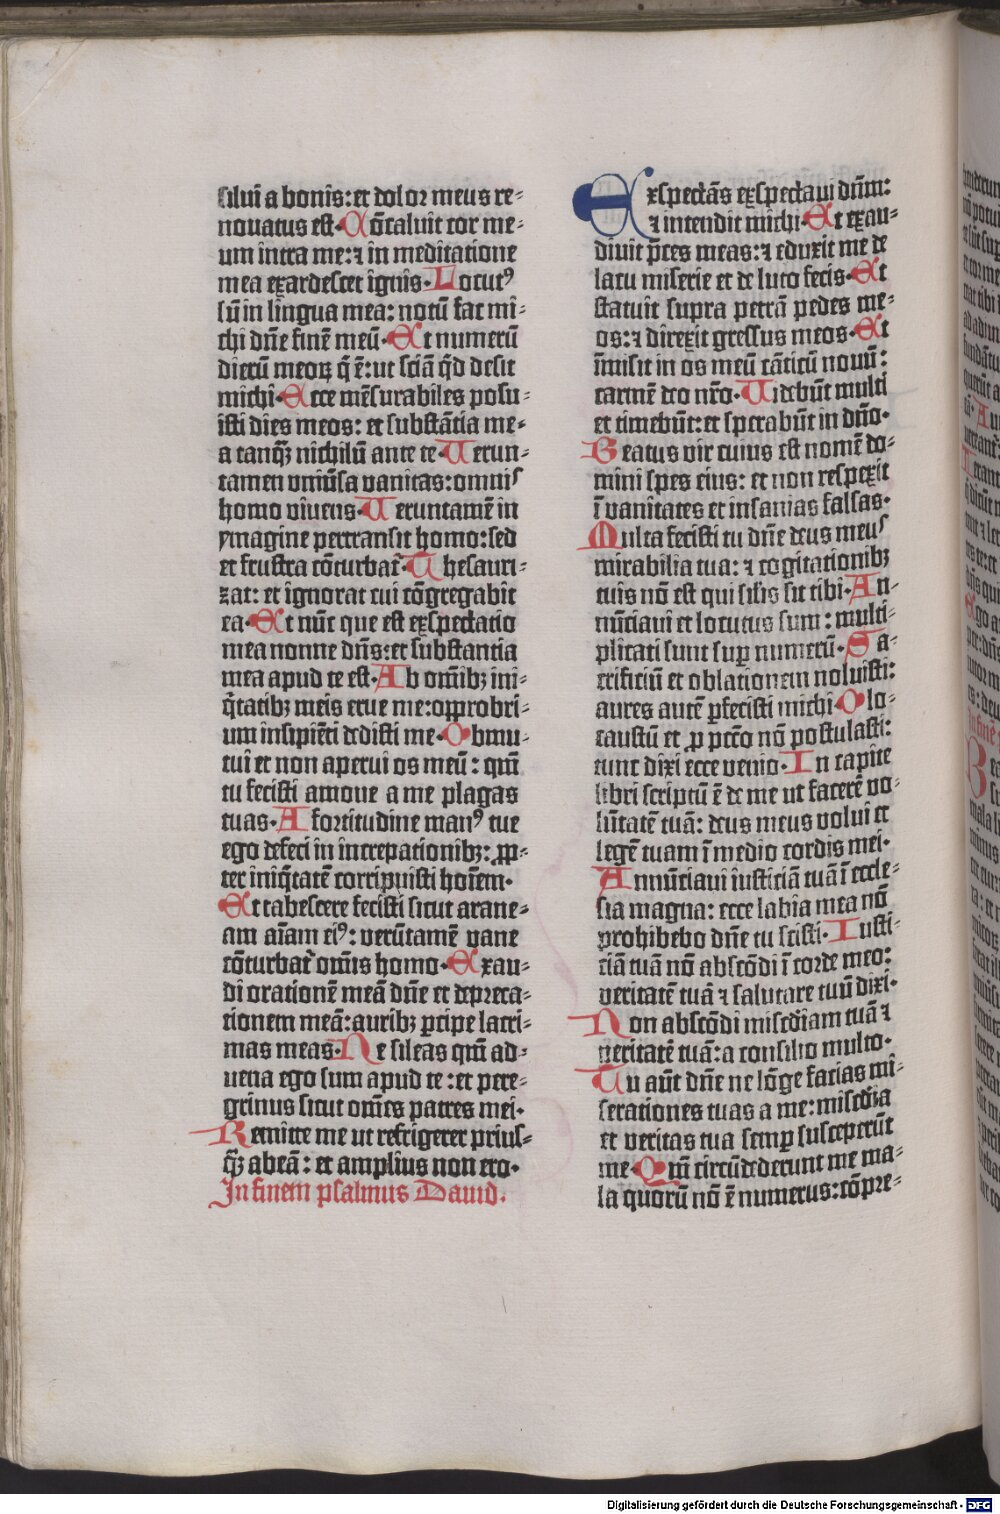 silui a bonis: et dolor meus re⸗
nouatus est. Cōcaluit cor me⸗
um intra me: ⁊ in meditatione
mea exardescet ignis. Locutꝰ
sū in lingua mea: notū fac mi⸗
chi dn̄e finē meū. Et numerū
dierū meoꝝ q̄ ē: ut sciā q̄d desit
michi. Ecce mēsurabiles posu⸗
isti dies meos: et substātia me⸗
a tanqꝫ nichilū ante te. Uerun⸗
tamen vniūsa vanitas: omnis
homo viuens. Ueruntamē in
ymagine pertransit homo: sed
et frustra cōturbat᷑. Thesauri⸗
zat: et ignorat cui cōgregabit
ea. Et nūc que est exspectatio
mea nonne dn̄s: et substantia
mea apud te est. Ab om̄ibꝫ ini⸗
q̄tatibꝫ meis erue me: opprobri⸗
um insipiēti dedisti me. Obmu⸗
tui et non aperui os meū: qm̄
tu fecisti amoue a me plagas
tuas. A fortitudine manꝰ tue
ego defeci in increpationibꝫ: ꝓp⸗
ter iniq̄tatē corripuisti hoīem.
Et tabescere fecisti sicut arane⸗
am aīam eiꝰ: verūtamē vane
cōturbat᷑ om̄is homo. Exau⸗
di orationē meā dn̄e et depreca⸗
tionem meā: auribꝫ ꝑcipe lacri⸗
mas meas. Ne sileas qm̄ ad⸗
uena ego sum apud te: et pere⸗
grinus sicut om̄es patres mei.
Remitte me ut refrigerer prius⸗
qꝫ abeā: et amplius non ero.
In finem psalmus Dauid.
Exspectās exspectaui dn̄m:
⁊ intendit michi. Et exau⸗
diuit p̄ces meas: ⁊ eduxit me de
lacu miserie et de luto fecis. Et
statuit supra petrā pedes me⸗
os: ⁊ direxit gressus meos. Et
īmisit in os meū cāticū nouū:
carmē deo nr̄o. Uidebūt multi
et timebūt: et sperabūt in dn̄o.
Beatus vir cuius est nomē do⸗
mini spes eius: et non respexit
ī vanitates et insanias falsas.
Multa fecisti tu dn̄e deus meus
mirabilia tua: ⁊ cogitationibꝫ
tuis nō est qui sil̄is sit tibi. An⸗
nūciaui et locutus sum: multi⸗
plicati sunt suꝑ numerū. Sa⸗
crificiū et oblationem noluisti:
aures autē ꝑfecisti michi. Olo⸗
caustū et ꝓ pctō nō postulasti:
tunc dixi ecce venio. In capite
libri scriptū ē de me ut facerē vo⸗
lūtatē tuā: deus meus volui et
legē tuam ī medio cordis mei.
Annūciaui iusticiā tuā ī eccle⸗
sia magna: ecce labia mea nō
prohibebo dn̄e tu scisti. Iusti⸗
ciā tuā nō abscōdi ī corde meo:
veritatē tuā ⁊ salutare tuū dixi.
Non abscōdi misc̄diam tuā ⁊
veritatē tuā: a consilio multo.
Tu aūt dn̄e ne lōge facias mi⸗
serationes tuas a me: misc̄dia
et veritas tua semꝑ susceperūt
me. Qm̄ circūdederunt me ma⸗
la quorū nō ē numerus: cōpre⸗
Digitalisierung gefördert durch die Deutsche Forschungsgemeinschaft - DFG